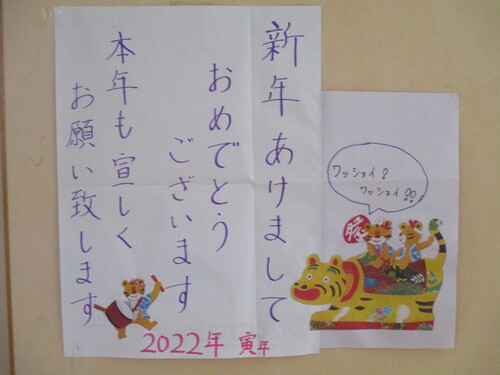 新年あけまして
おめでとう
ございます
本年も宜しく
お願い致します
2022年 寅年
ワッショイ!
ワッショイ!!
祭